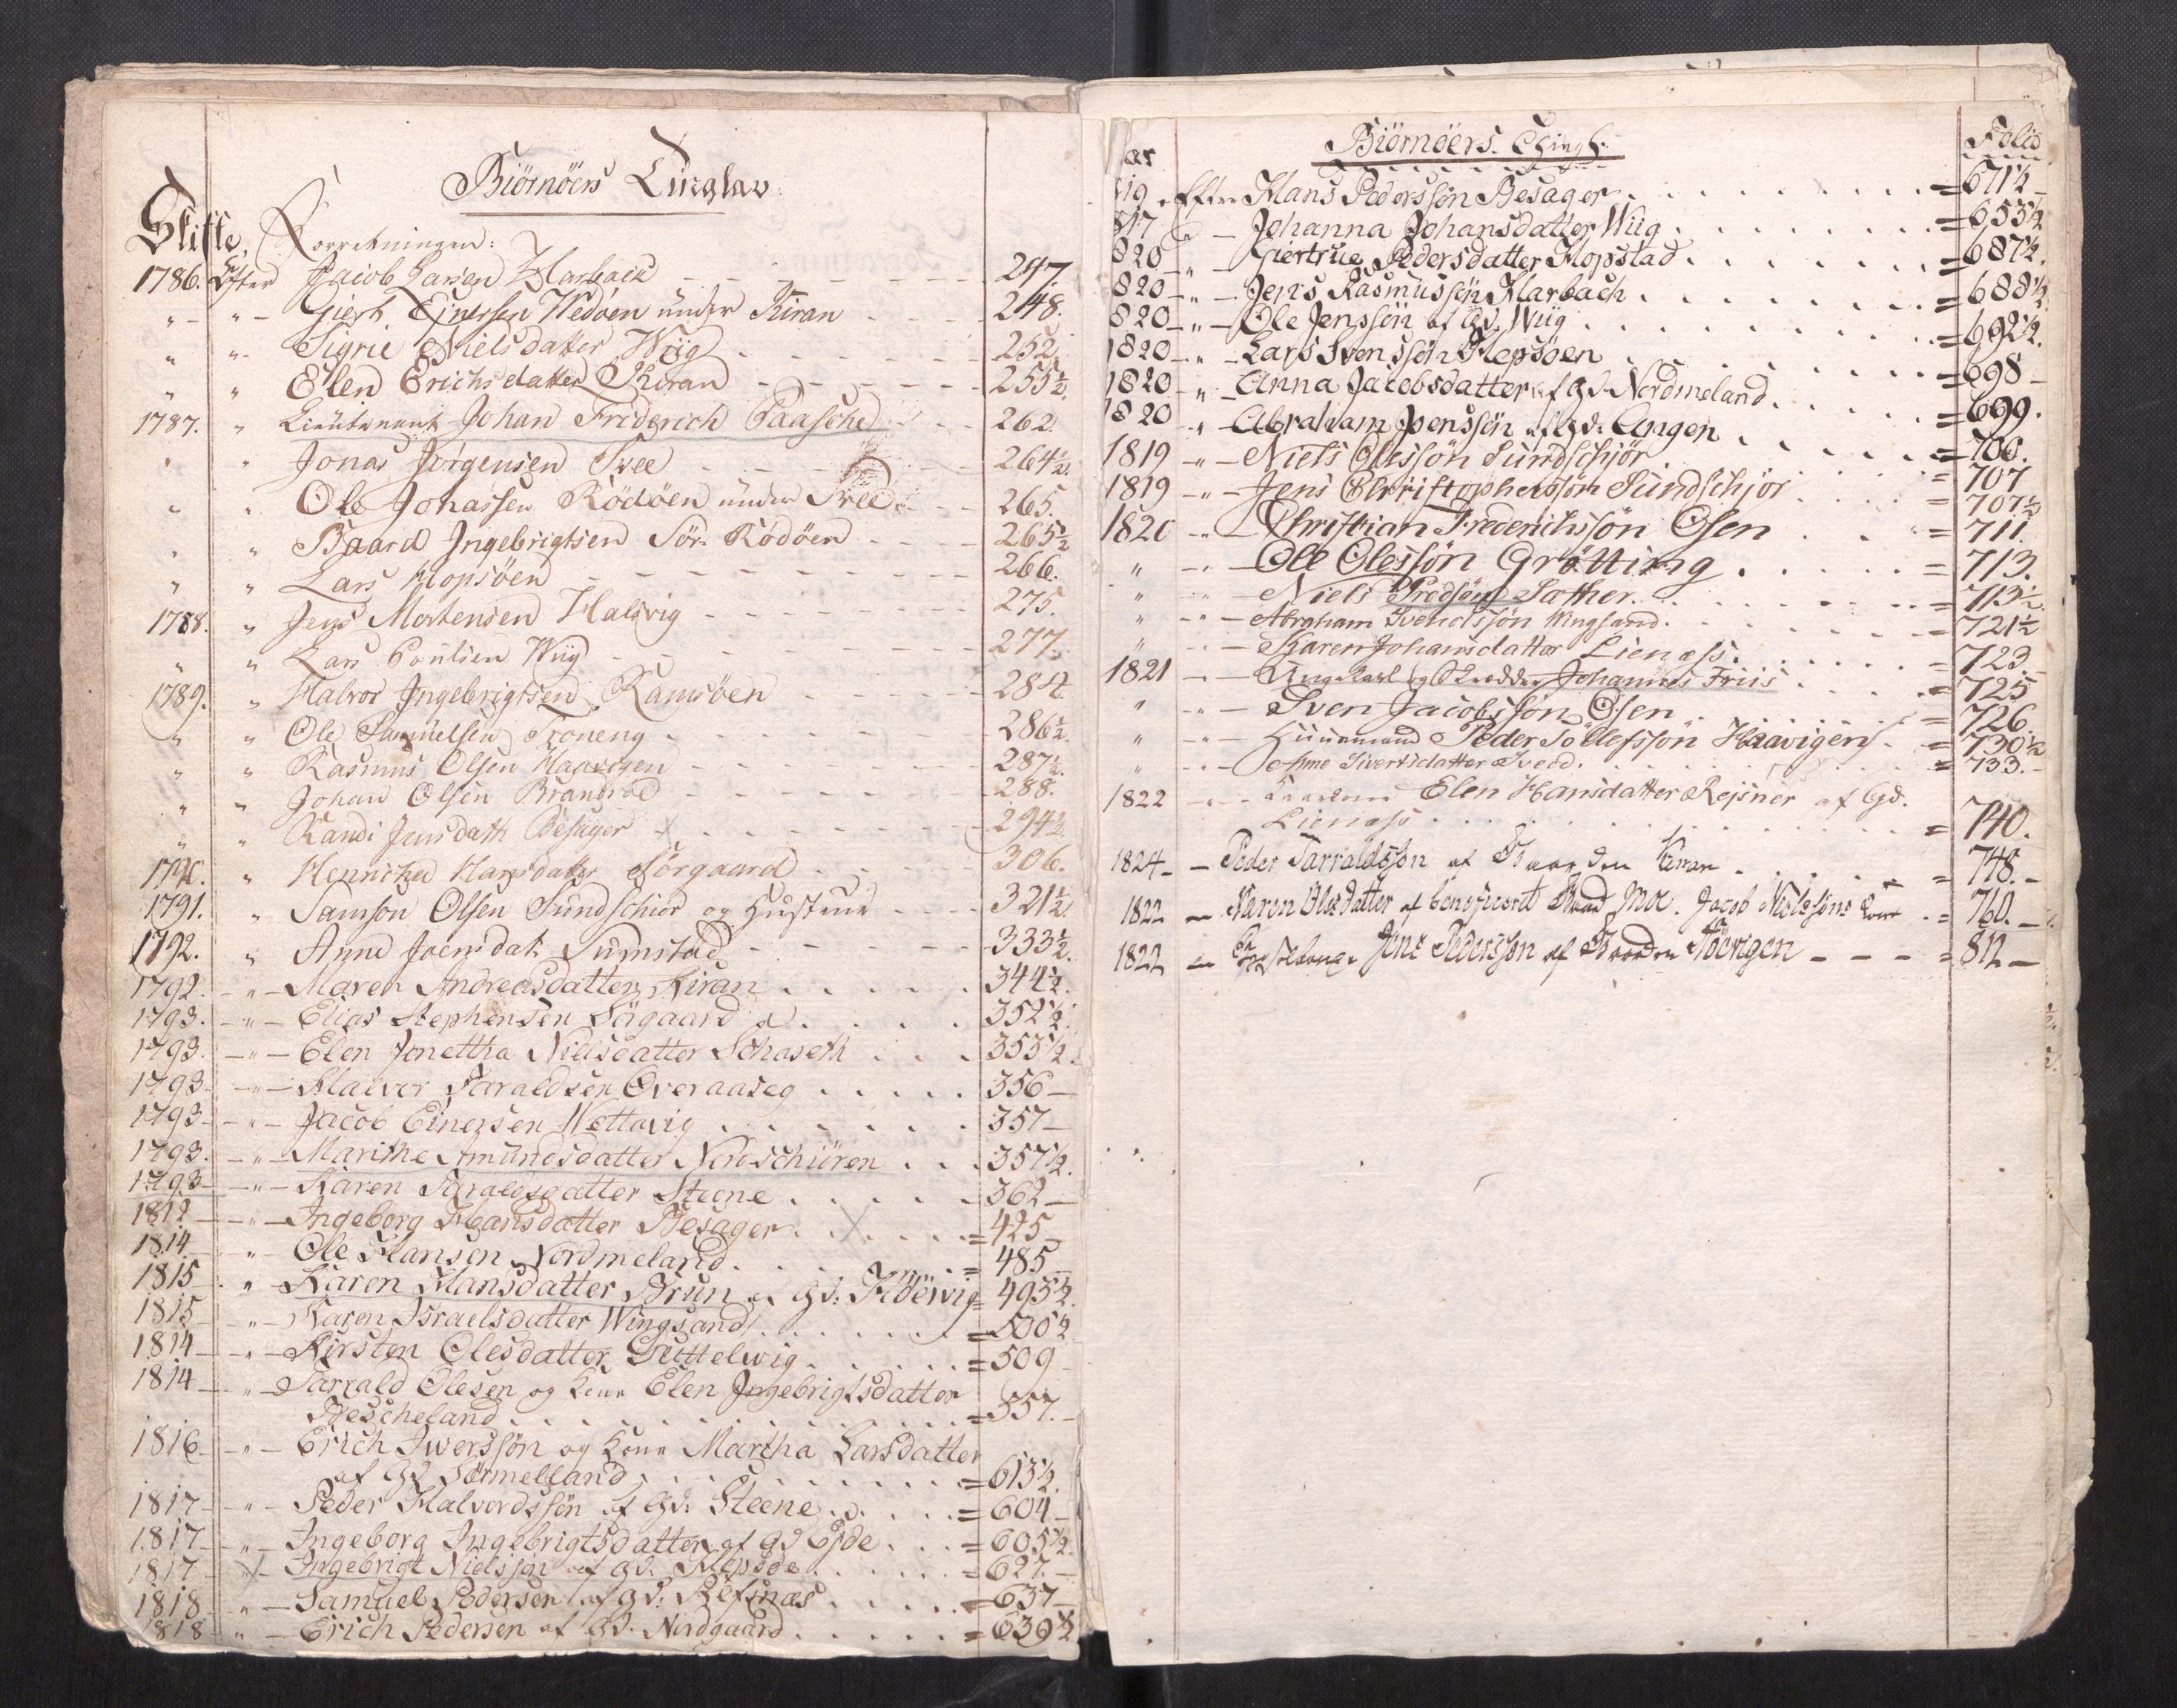 Biörnöers Tinglav.
Skifte Forretninger:
1786. Efter Jacob Larsen Harbach - - - 247.
" - " - Giert Ejnersen Wedöen under Kiran - - - 248.
" " - Sigrie Nielsdatter Wiig - - - 252.
" " Elen Erichsdatter Kiran - - - 255½.
1787. " Lieutenant Johan Friderich Paasche - - - 262.
" " Jonas Jørgensen Tvee - - - 264½.
" " Ole Johassen Rödöen under Tvee - - - 265.
" " Baard Ingebrigtsen Sör Rödöen - - - 265½
" " Lars Hopsöen - - - 266.
1788. " Jens Mortensen Halsvig - - - 275.
" " Lars Poulsen Wiig - - - 277.
1789. " Halvor Ingebrigtsen Ramsöen - - - 284.
" " Ole Samuelsen Troneng - - - 286½.
" " Rasmus Olsen Haavigen - - - 287½.
" " Johan Olsen - - - 288.
" " Randi Jensdatt Besager - - - 294½.
1790. " Henriche Hansdatter Sörgaard - - - 306.
1791. " Samson Olsen Sundschior og Hustrue - - - 321½.
1792. " Anne Joensdatt Sumstad - - - 333½.
1792. - " - Maren Andreasdatter Kiran . . . . 344½.
1793. - " - Elias Stephensen Sörgaard . . . . 352½.
1793. - " - Elen Jonettha Nielsdatter Schaseth . . . 353½.
1793 - " - Halvor Taraldsen Overaaseg . . . . 356 -
1793 - " - Jacob Einersen Wettavig . . . . 357 -
1793. - " - Marithe Amundsdatter Nordschiören . . . 357½.
1793 - " - Karen Taraldsdatter Steene . . . . 362 -
1812 - " - Ingeborg Hansdatter Besager . . . . = 425 -
1814 - " - Ole Hansen Nordmeland . . . . = 485 -
1815 - " - Karen Hansdatter Brun af gd: = 495½.
1815 - " - Karen Israelsdatter Wingsand . . . . = 506½
1814 - " - Kirsten Olesdatter Tuttelwig . . . . = 509 -
1814 - " - Tarrald Olesen og Kone Elen Ingebrigtsdatter
Hescheland . . . . = 557. -
1816 - " - Erich Iwerssön og Kone Martha Larsdatter
af gd Sörmelland . . . . = 613½.
1817 - " - Peder Halvordssön af gd: Steene . . . . = 604 -
1817 - " - Ingeborg Ingebrigtsdatter af gd Ejde . . . = 605½.
1817 - " - Ingebrigt Nielssön af gd. Hopsöe . . . . = 627. -
1818 - " - Samuel Pedersen af gd: Refsnæs . . . . = 637 -
1818 - " - Erich Pedersen af gd. Nordgaard . . . . = 639½
Biörnöers. Thingl:
Folio
819 efter Hans Pederssön Besager . . . . = 671½ -
817 " - Johanna Johansdatter Wiig . . . . = 653½
820 - " - Giertrue Pedersdatter Hopstad . . . . = 687½.
820 - " - Jens Rasmussön Harbach . . . . = 688½
820 - " - Ole Jenssön af Gd. Wiig . . . . = 692½.
1820 - " - Lars Svenssön Hopsöen . . . . = 698 -
1820 - " - Anna Jacobsdatter af gd. Nordmeland . . . . = 699.
1820 - " - Abraham Jpenssön af Gd: Angen . . . . = 706.
1819 - " - Niels Olessön Sundschjör . . . . = 707
1819 - " - Jens Christophersön Sundschjör . . . . = 707½
1820 - " - Christian Frederichssön Osen . . . = 711.
" - " - Ole Olessön Grötting . . . . = 713.
" - " - Niels Sæther . . . . = 713½
" - " - Abraham Svendssön Wingsand . . . . = 721½
" - " - Karen Johansdatter Lienæss . . . . = 723
1821 - " - Ungekarl og Skrædder Johannes Friis . . . . = 725
" - " - Sven Jacobssön Osen . . . . = 726
" - " - Huusmand Peder Tollefssön Haavigen . . = 730½
" - " - Sivertsdatter . . . . = 733. -
1822 - " - Elen Hansdatter Rejsner af Gd.
Lienæss . . . . = 740.
1824 - - Peder Tarraldssön af Gaarden Kiran . . . . = 748. -
1822 - Karen Olesdatter af beneficeret Gaard Moe. Jacob Nielssöns Kone . = 760. -
1822 - Jens Pederssön af Gaarden - - - = 812 -